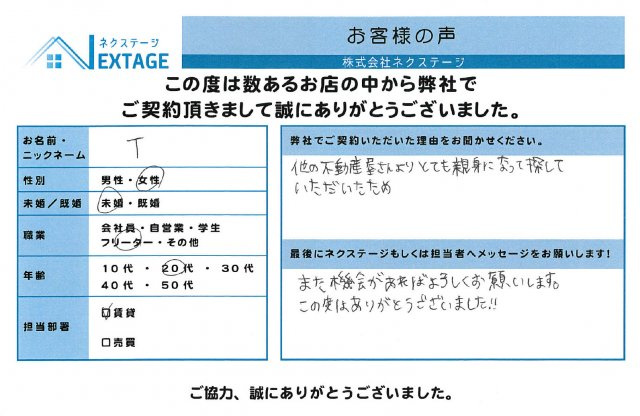 ネクステージ
NEXTAGE
お客様の声
株式会社ネクステージ
この度は数あるお店の中から弊社で
ご契約頂きまして誠にありがとうございました。
お名前・
ニックネーム
T
性別
男性・女性
未婚/既婚
未婚・既婚
職業
会社員・自営業・学生
フリーター・その他
年齢
10代・20代・30代
40代・50代
担当部署
☑賃貸
□売買
弊社でご契約いただいた理由をお聞かせください。
他の不動産屋さんよりとても親身になって探して
いただいたため
最後にネクステージもしくは担当者へメッセージをお願いします!
また機会があればよろしくお願いします。
この度はありがとうございました!!
ご協力、誠にありがとうございました。